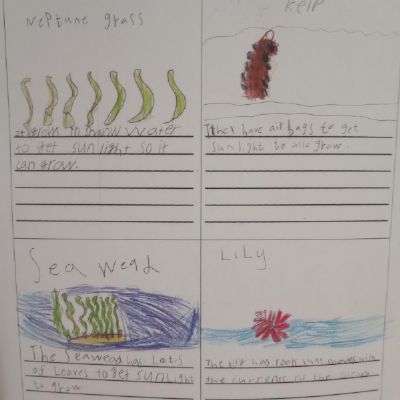 Neptune grass
It grows in shalow water
to get sun light so it
can grow.
kelp
They have air bags to get
sun light to allo grow.
Sea wead
The Seawead has Lots
of Leaves to get sun Light
to grow
LiLy
The lily has roots that moves with
the currents of the